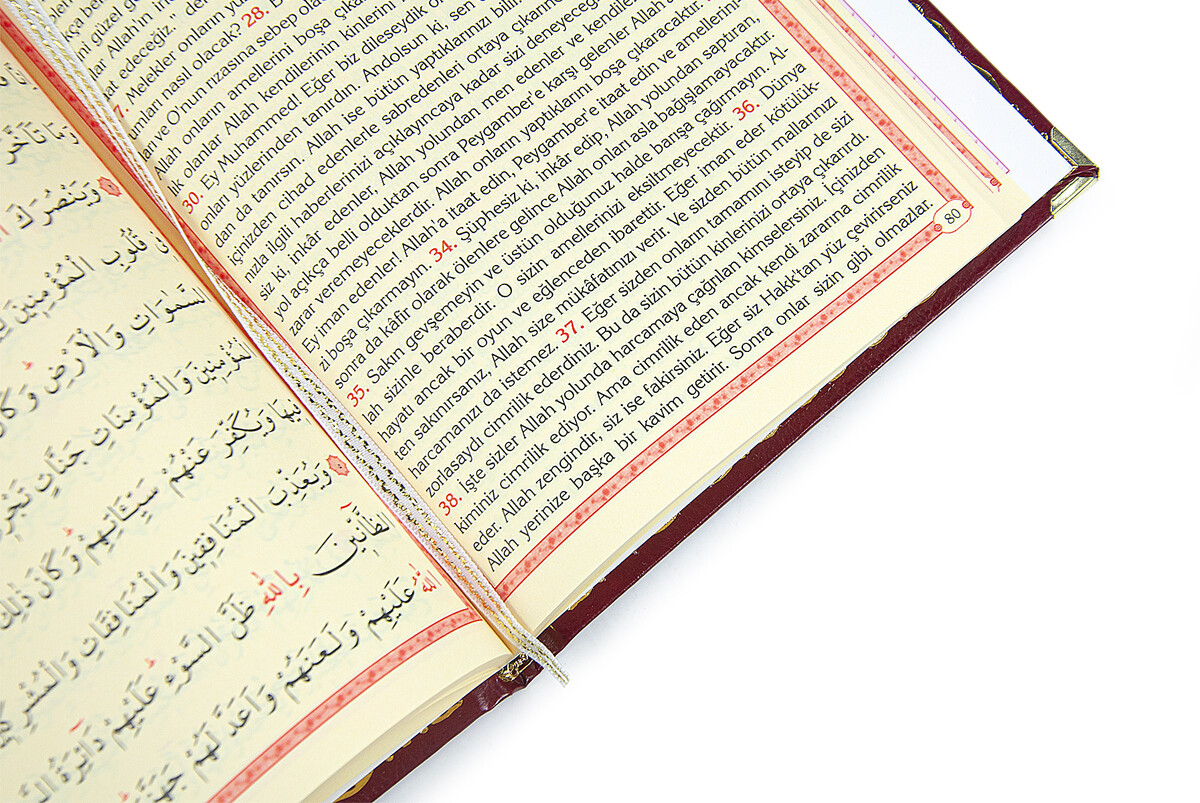 ar Allah'ın
at edeceğiz.," der
Melekler onların
umları nasıl olacak? 28. B
ve O'nun rızasına sebep ola
Allah onların amellerini boşa çıka
lik olanlar Allah kendilerinin kinlerini
30. Ey Muhammed! Eğer biz dileseydik o
onları yüzlerinden tanırdın. Andolsun ki, sen
dan da tanırsın. Allah ise bütün yaptıklarınızı bilir
içinizden cihad edenlerle sabredenleri ortaya çıkarınc
nızla ilgili haberlerinizi açıklayıncaya kadar sizi deneyeceğ
siz ki, inkâr edenler, Allah yolundan men edenler ve kendiler
yol açıkça belli olduktan sonra Peygamber'e karşı gelenler Allah'
zarar veremeyeceklerdir. Allah onların yaptıklarını boşa çıkaracaktır.
Ey iman edenler! Allah'a itaat edin, Peygamber'e itaat edin ve amellerini-
zi boşa çıkarmayın. 34. Şüphesiz ki, inkâr edip, Allah yolundan saptıran,
sonra da kâfir olarak ölenlere gelince Allah onları asla bağışlamayacaktır.
35. Sakın gevşemeyin ve üstün olduğunuz halde barışa çağırmayın. Al-
lah sizinle beraberdir. O sizin amellerinizi eksiltmeyecektir. 36. Dünya
hayatı ancak bir oyun ve eğlenceden ibarettir. Eğer iman eder kötülük-
ten sakınırsanız, Allah size mükâfatınızı verir. Ve sizden bütün mallarınızı
harcamanızı da istemez. 37. Eğer sizden onların tamamını isteyip de sizi
zorlasaydı cimrilik ederdiniz. Bu da sizin bütün kinlerinizi ortaya çıkarırdı.
38. İşte sizler Allah yolunda harcamaya çağrılan kimselersiniz. İçinizden
kiminiz cimrilik ediyor. Ama cimrilik eden ancak kendi zararına cimrilik
eder. Allah zengindir, siz ise fakirsiniz. Eğer siz Hakk'tan yüz çevirirseniz
Allah yerinize başka bir kavim getirir. Sonra onlar sizin gibi olmazlar.
80
تَاَخَّرَ
وَيَنْصُرَكَ
قُلُوبِ الْمُؤْمِنِينَ
السَّمٰوَاتِ وَالْاَرْضِ وَكَانَ
الْمُؤْمِنِينَ وَالْمُؤْمِنَاتِ جَنَّاتٍ تَجْرِ
فِيهَا وَيُكَفِّرَ عَنْهُمْ سَيِّـَٔاتِهِمْ وَكَانَ ذٰلِكَ
وَيُعَذِّبَ الْمُنَافِقِينَ وَالْمُنَافِقَاتِ وَالْمُشْرِكِينَ
الظَّٓانِّينَ بِاللّٰهِ ظَنَّ السَّوْءِ عَلَيْهِمْ دَٓائِرَةُ
اللّٰهُ عَلَيْهِمْ وَلَعَنَهُمْ وَاَعَدَّ لَهُمْ جَهَنَّمَ